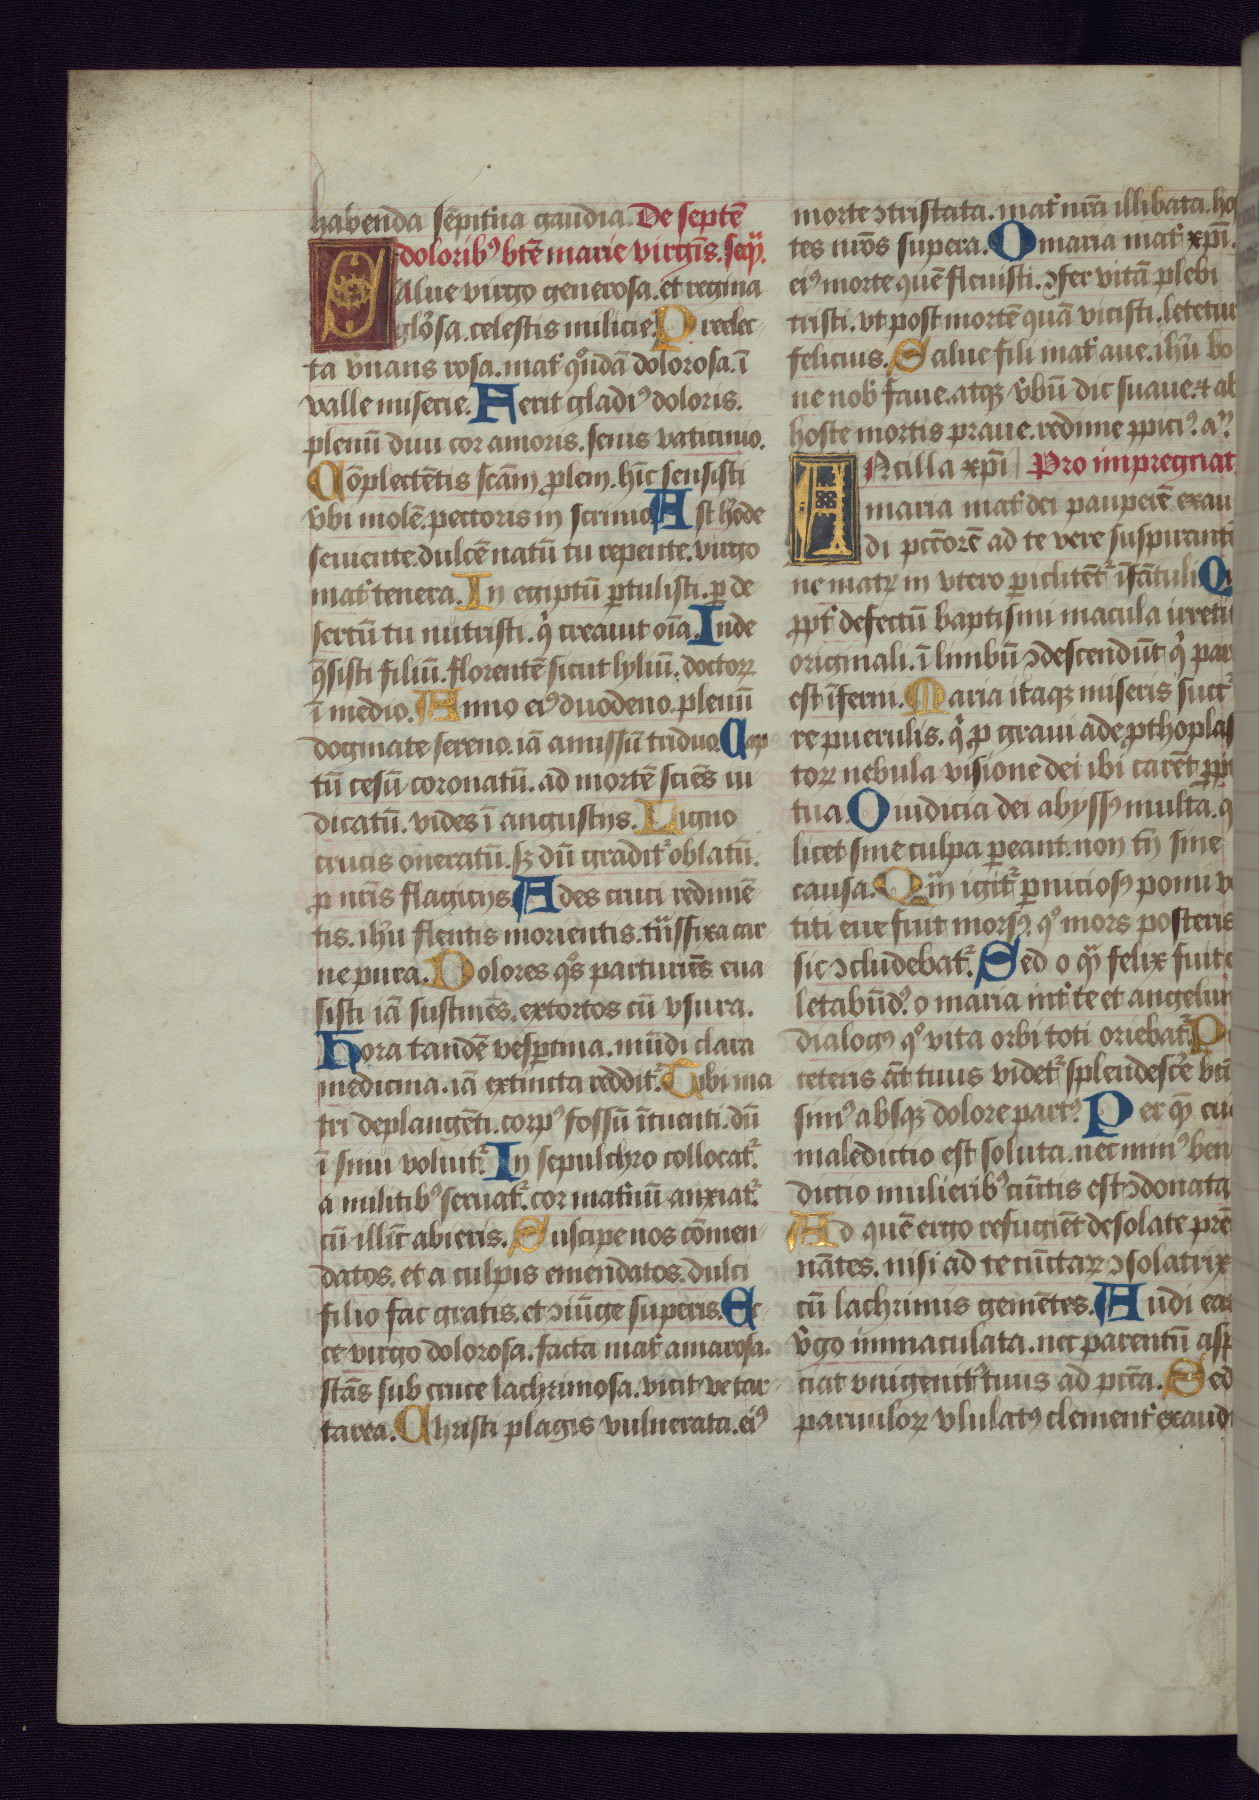 habenda sēpit̉na gaudia. De septē
doloribꝰ btē marie virgīs. seq̄.
Salue virgo generosa. et regina
glo̓sa. celestis milicie. Predec-
ta v̓nans rosa. mat̉ qͦndā dolorosa. ī
valle miserie. Aerit gladiꝰ doloris.
plenū diui cor amoris. senis vaticinio.
Cōplectētis scām ꝓlem. hīc sensisti
v̓bi molē. pectoris in scrinio. Ast hͦode
seuiente. dulcē natū tu repente. virgo
mat̉ tenera. In egiptū ꝑtulisti. ꝑ de-
sertū tu nutristi. qͥ creauit oīa. Inde
q̄sisti filiū. florentē sicut lyliū. doctoꝝ
ī medio. Anno eiꝰ duodeno. plenū
dogmate sereno. iā amissū triduo. Cap-
tū cesū coronatū. ad mortē sciēs iu
dicatū. vides ī angustijs. Ligno
crucis oneratū. sꝫ dū gradit᷑ oblatū.
ꝓ nr̄is flagicijs. Ades cruci redimē-
tis. ihū flentis morientis. trāsfixa car
ne pura. Dolores qͦs parturiēs eua
sisti iā sustinēs. extortos cū vsura.
Hora tandē vesꝑtina. mūdi clara
medicina. iā extincta reddit᷑. Tibi ma
tri deplangēti. corpꝰ fossū ītuenti. dū
ī sinu voluit᷑. In sepulchro collocat᷑.
a militibꝰ seruat᷑. cor mat̉nū anxiat᷑.
cū illīc abieris. Suscipe nos cōmen-
datos. et a culpis emendatos. dulci
filio fac gratis. et ꝯiūge superis. Ec
ce virgo dolorosa. facta mat̉ amarosa.
stās sub cruce lachrimosa. vicit ve tar-
tarea. Christi plagis vulnerata. eiꝰ
morte ꝯtristata. mat̉ nr̄a illibata. hos
tes nr̄os supera. O maria mat̉ xp̄i.
eiꝰ morte quē fleuisti. ꝯfer vitā plebi
tristi. vt post mortē quā vicisti. letetur
felicius. Salue fili mat̉ aue. ihū bo
ne nob̓ faue. atqꝫ v̓bū dic suaue. ⁊ ab
hoste mortis praue. redime ꝓpiciꝰ. a
Ancilla xp̄i Pro impregnat
maria mat̉ dei pauperē exau
di pctōrē ad te vere suspirantē
ne matꝝ in vtero ꝑiclitēt᷑ īfātuli Qi
ꝓpt̉ defectū baptismi macula irretiti
originali. ī limbū ꝯdescendūt qͥ pars
est īferni. Maria itaqꝫ miseris succ᷑
re puerulis. qͥ ꝓ graui ade ꝓthoplas
toꝝ nebula visione dei ibi carēt ꝑpe
tua. O iudicia dei abyssꝰ multa. q
licet sine culpa ꝑeant. non tn̄ sine
causa. Qm̄ igit᷑ ꝑniciosꝰ pomi ve
titi eue fuit morsꝰ. qͦ mors posteris
sic ꝯcludebat᷑. Sed o qͣ felix fuit e
letabūdꝰ o maria int̉ te et angelum
dialogꝰ qͦ vita orbi toti oriebat᷑. Pr
ceteris āt tuus videt᷑ splendescēe vn
simꝰ absqꝫ dolore partꝰ. Per quē cu
maledictio est soluta. nec minꝰ ben
dictio mulieribꝰ cūctis est ꝯdonata
Ad quē ergo refugiēt desolate pre
nātes. nisi ad te cūctaꝝ ꝯsolatrix
cū lachrimis gemētes. Audi eas
v̓go immaculata. nec parentū asp
ciat vnigenitꝰ tuus ad pctā. Sed
paruuloꝝ vlulatꝰ clement̓ exaudi